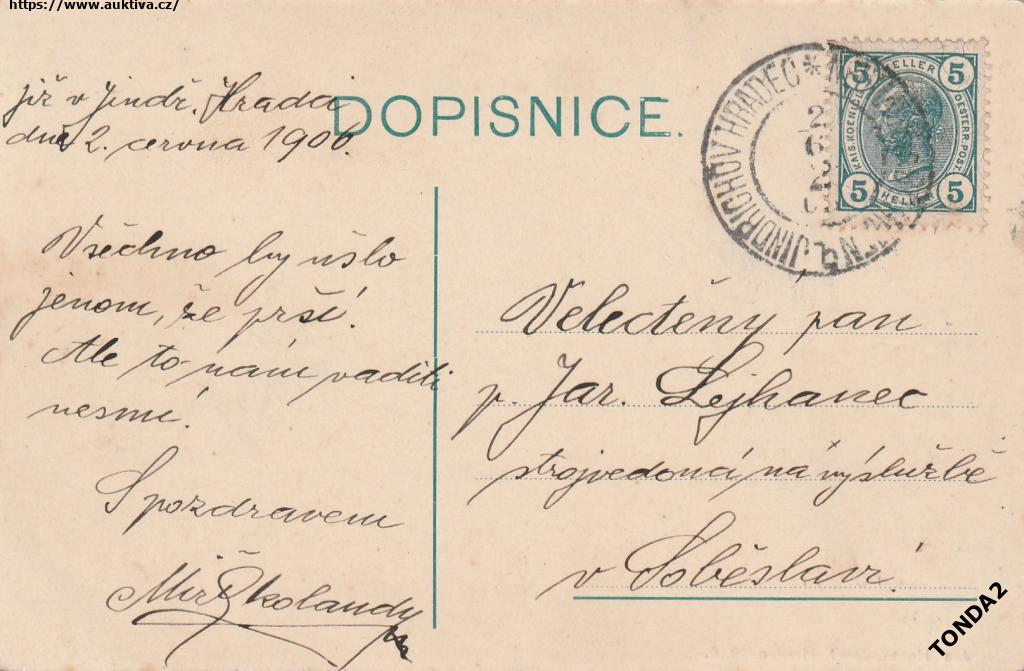 https://www.auktiva.cz/
Již v Jindř. Hradci
dne 2. června 1906.
DOPISNICE.
Všechno by ušlo
jenom, že prší.
Ale to nám vaditi
nesmí!
S pozdravem
JINDŘICHŮV HRADEC *
5 HELLER 5
KAIS. KOENIGL.
OESTERR. POST.
5 HELLER 5
Velectěný pan
p. Jar. Lejhanec
strojvedoucí na výslužbě
v Soběslavi
TONDA2